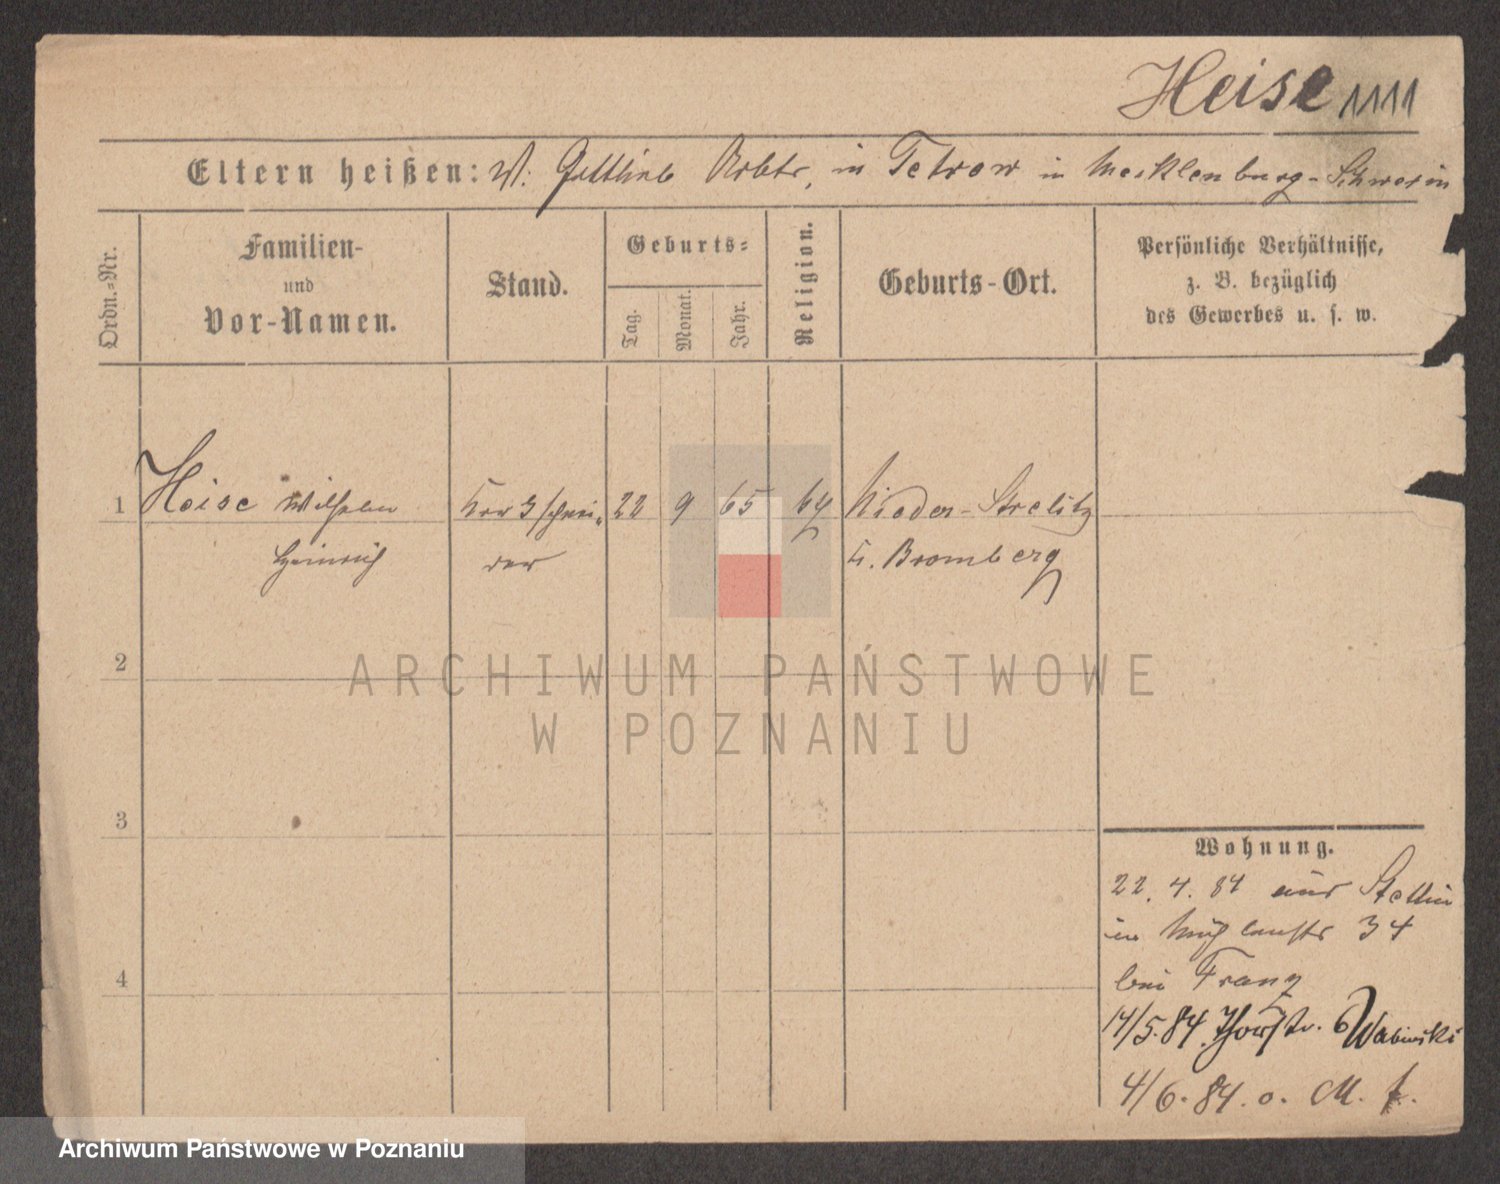 Heise 1111
Eltern heißen: W. Gottlieb in Tetrow in Mecklenburg-Schwerin
Ordn.=Nr.
Familien-
und
Vor-Namen.
Stand.
Geburts=
Tag.
Monat.
Jahr.
Religion.
Geburts-Ort.
Persönliche Verhältnisse,
z. B. bezüglich
des Gewerbes u. s. w.
1 Heise Wilhelm 22 9 65 Nieder-Strelitz
Heinrich K. Bromberg
2
3
4
Wohnung.
22. 4. 84 aus Stettin
in 34
bei Franz
14/5.84. Thorstr. 6
4/6. 84. o. M. f.
ARCHIWUM PAŃSTWOWE
W POZNANIU
Archiwum Państwowe w Poznaniu